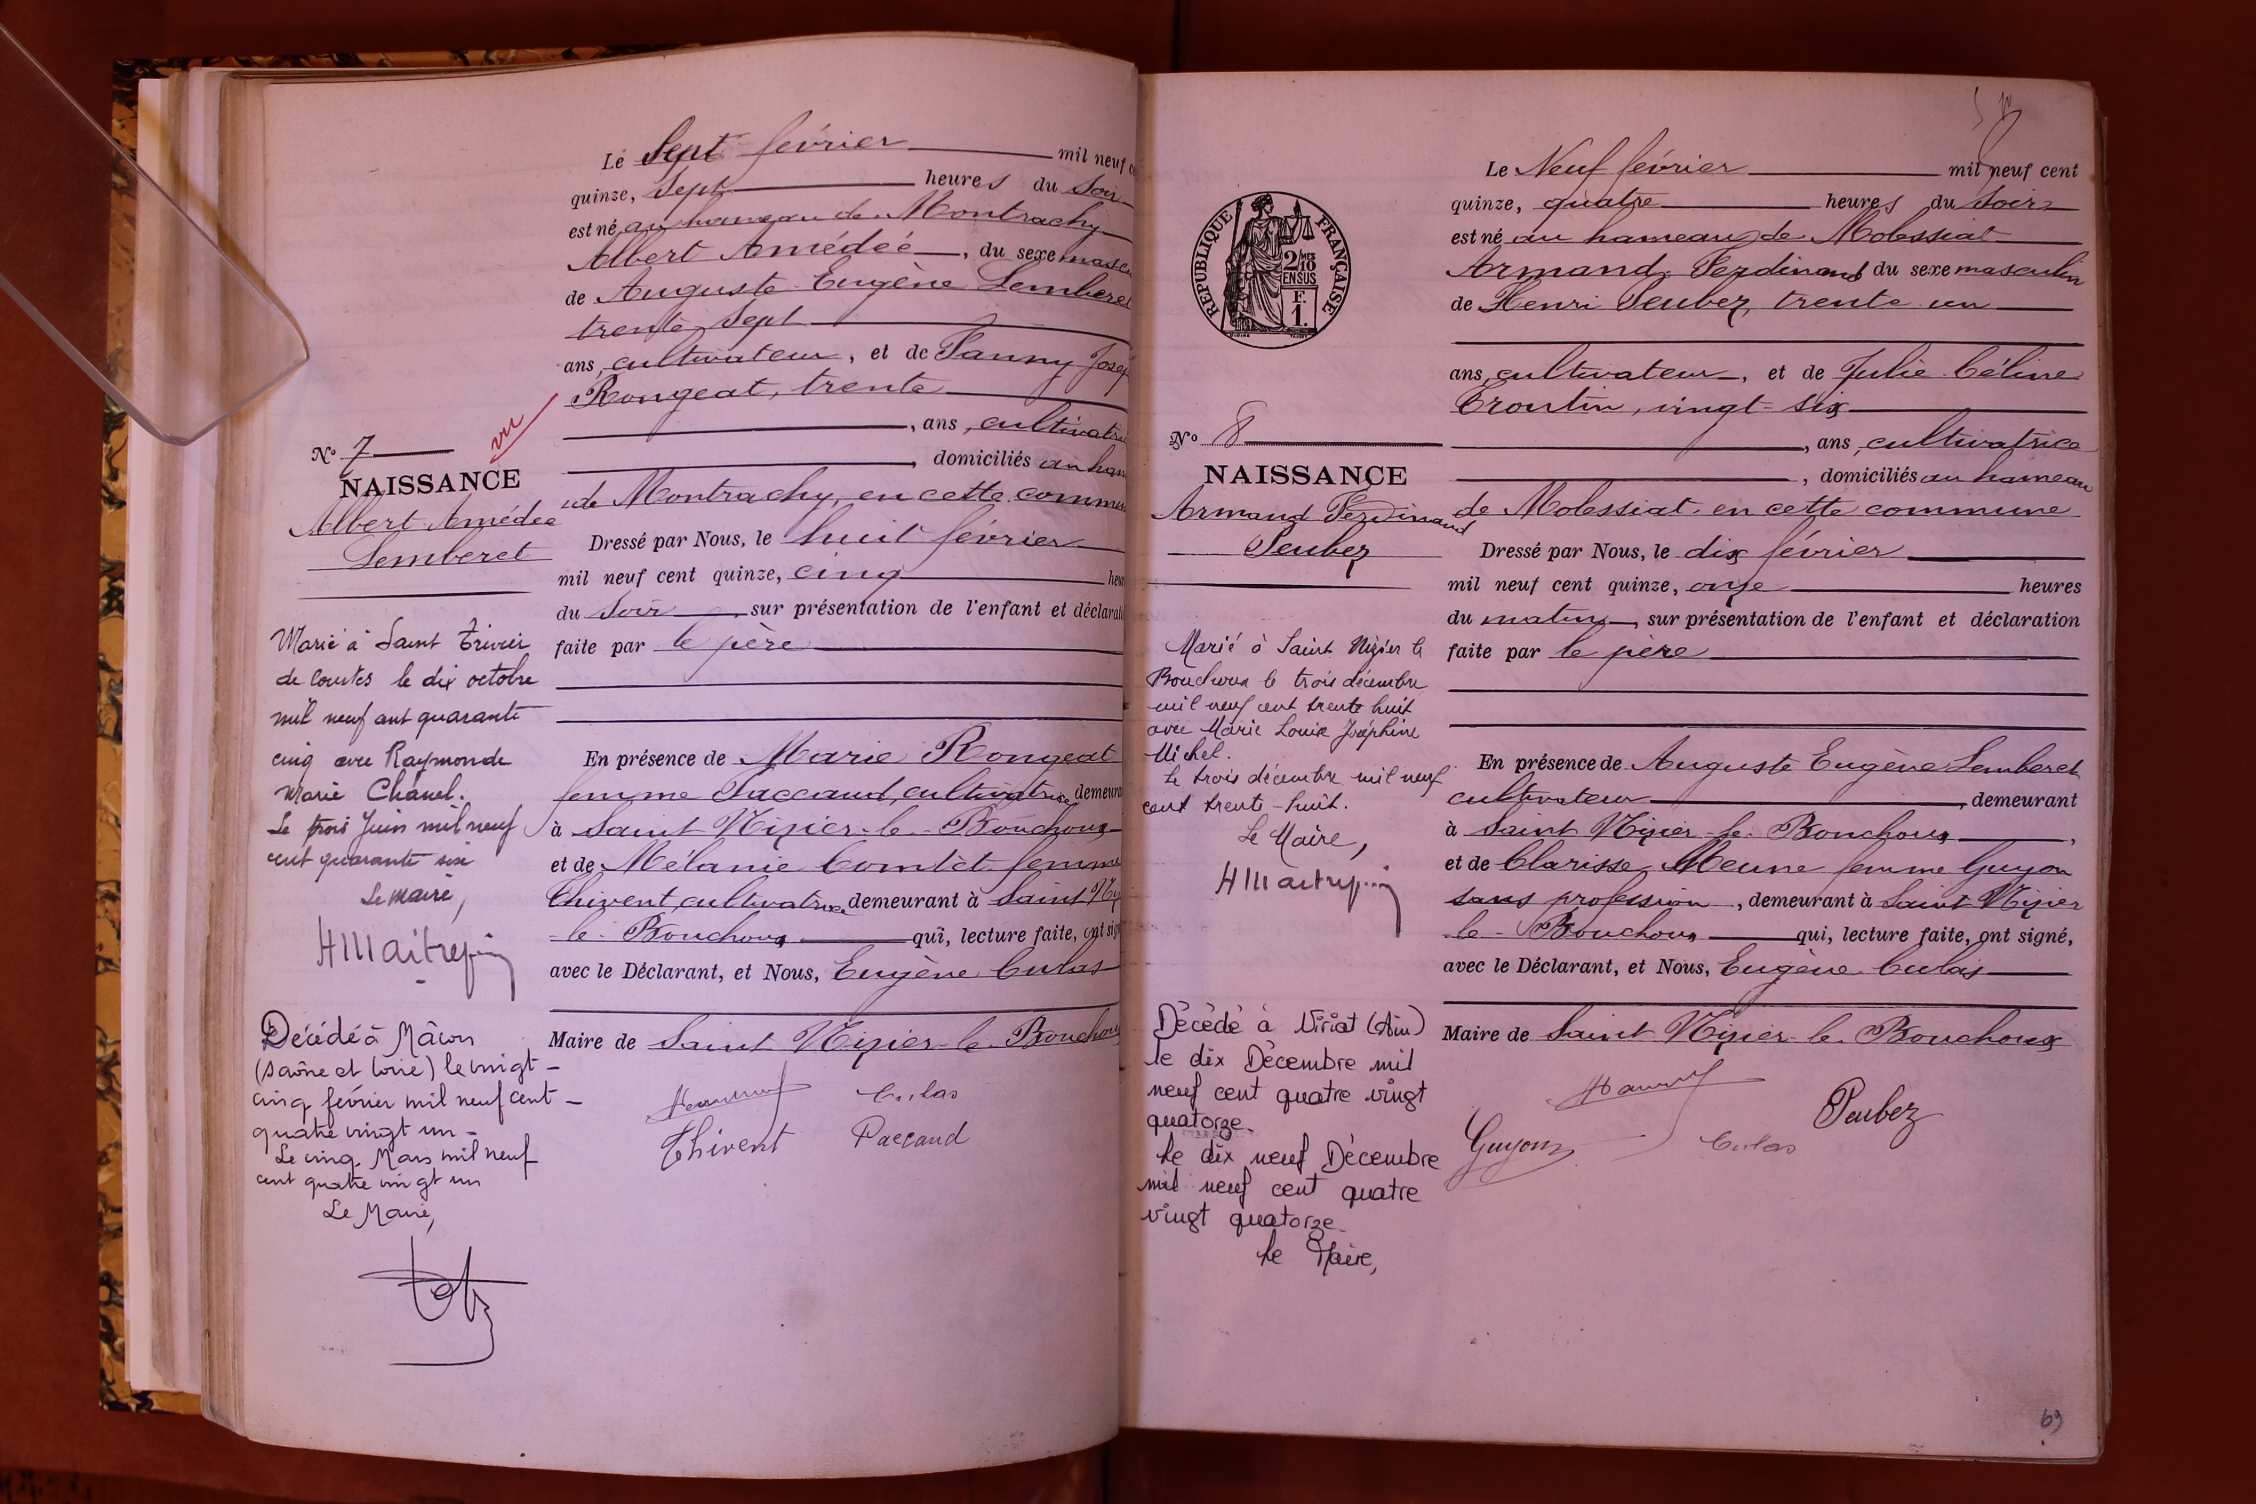 Le Sept février mil neuf
quinze, Sept heures du Soir
est né au hameau de Montrachy
Albert Amédée, du sexe
de Auguste Eugène Lemberet
trente sept
ans, cultivateur, et de Fanny
Rongeat, trente
, ans, cultivatrice
, domiciliés au
de Montrachy, en cette
Dressé par Nous, le huit février
mil neuf cent quinze, cinq
du Soir, sur présentation de l'enfant et
faite par le père
En présence de Marie Rongeat
femme Paccaud, cultivatrice,
à Saint Nizier-le-Bouchoux
et de Mélanie Comtet femme
Thivent, cultivatrice, demeurant à Saint
le-Bouchoux qui, lecture faite, ont
avec le Déclarant, et Nous, Eugène Culas
Maire de Saint Nizier-le-Bouchoux
Culas
Thivent Paccaud
vu
No 7
NAISSANCE
Albert Amédée
Lemberet
Marié à Saint Trivier
de Courtes le dix octobre
mil neuf cent quarante
cinq avec Raymonde
Marie Chanel.
Le trois Juin mil neuf
cent quarante six
Le maire,
Décédé à Mâcon
(Saône et Loire) le vingt-
cinq février mil neuf cent-
quatre vingt un-
Le cinq Mars mil neuf
cent quatre vingt un
Le Maire,
RÉPUBLIQUE FRANÇAISE
2/10MES
EN SUS
F.
1.
Le Neuf février mil neuf cent
quinze, quatre heures du Soir
est né au hameau de Molessiat
Armand Ferdinand du sexe masculin
de Henri Peubez, trente un
ans, cultivateur, et de Julie Céline
Troutin, vingt-six
, ans, cultivatrice
, domiciliés au hameau
de Molessiat, en cette commune
Dressé par Nous, le dix février
mil neuf cent quinze, onze heures
du matin, sur présentation de l'enfant et déclaration
faite par le père
En présence de Auguste Eugène Lemberet
cultivateur, demeurant
à Saint Nizier-le-Bouchoux,
et de Clarisse Meune femme Guyon
sans profession, demeurant à Saint Nizier
le-Bouchoux qui, lecture faite, ont signé,
avec le Déclarant, et Nous, Eugène Culas
Maire de Saint Nizier-le-Bouchoux
Peubez
Guyon Culas
No 8
NAISSANCE
Armand Ferdinand
Peubez
Marié à Saint Nizier le
Bouchoux le trois décembre
mil neuf cent trente huit
avec Marie Louise Joséphine
Michel.
Le trois décembre mil neuf
cent trente-huit.
Le Maire,
Décédé à Viriat (Ain)
le dix Décembre mil
neuf cent quatre vingt
quatorze.
Le dix neuf Décembre
mil neuf cent quatre
vingt quatorze.
Le Maire,
69